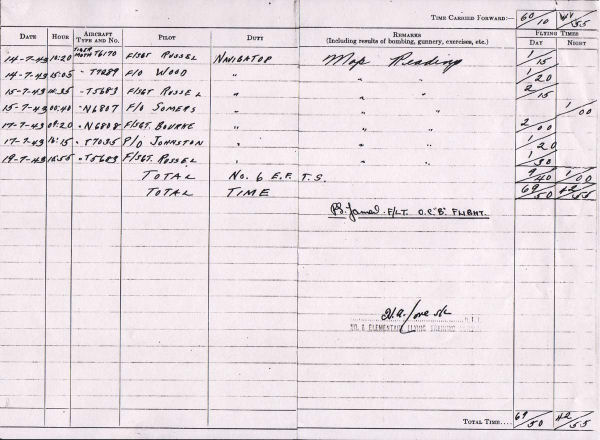 TIME CARRIED FORWARD:— 60/10 55
DATE HOUR AIRCRAFT TYPE AND NO. PILOT DUTY REMARKS (Including results of bombing, gunnery, exercises, etc.) FLYING TIMES DAY NIGHT
14-7-43 10:20 TIGER MOTH T6170 F/SGT RUSSEL NAVIGATOR Map Reading 1/15
14-7-43 15:05 " T7289 F/O WOOD " " " 1/20
15-7-43 " T5683 F/SGT RUSSEL " " " 2/15
15-7-43 00:40 " N6807 F/O SOMERS " " " 1/00
17-7-43 09:20 " N6808 F/SGT. BOURKE " " " 2/00
17-7-43 " T7035 P/O JOHNSTON " " " 1/20
19-7-43 " T5683 F/SGT. RUSSEL " " " 1/30
TOTAL NO. 6 E.F.T.S. 9/40 1/00
TOTAL TIME 69/50 42/55
F/LT. O.C. "B" FLIGHT.
NO. 6 ELEMENTARY FLYING TRAINING
TOTAL TIME.... 69/50 42/55